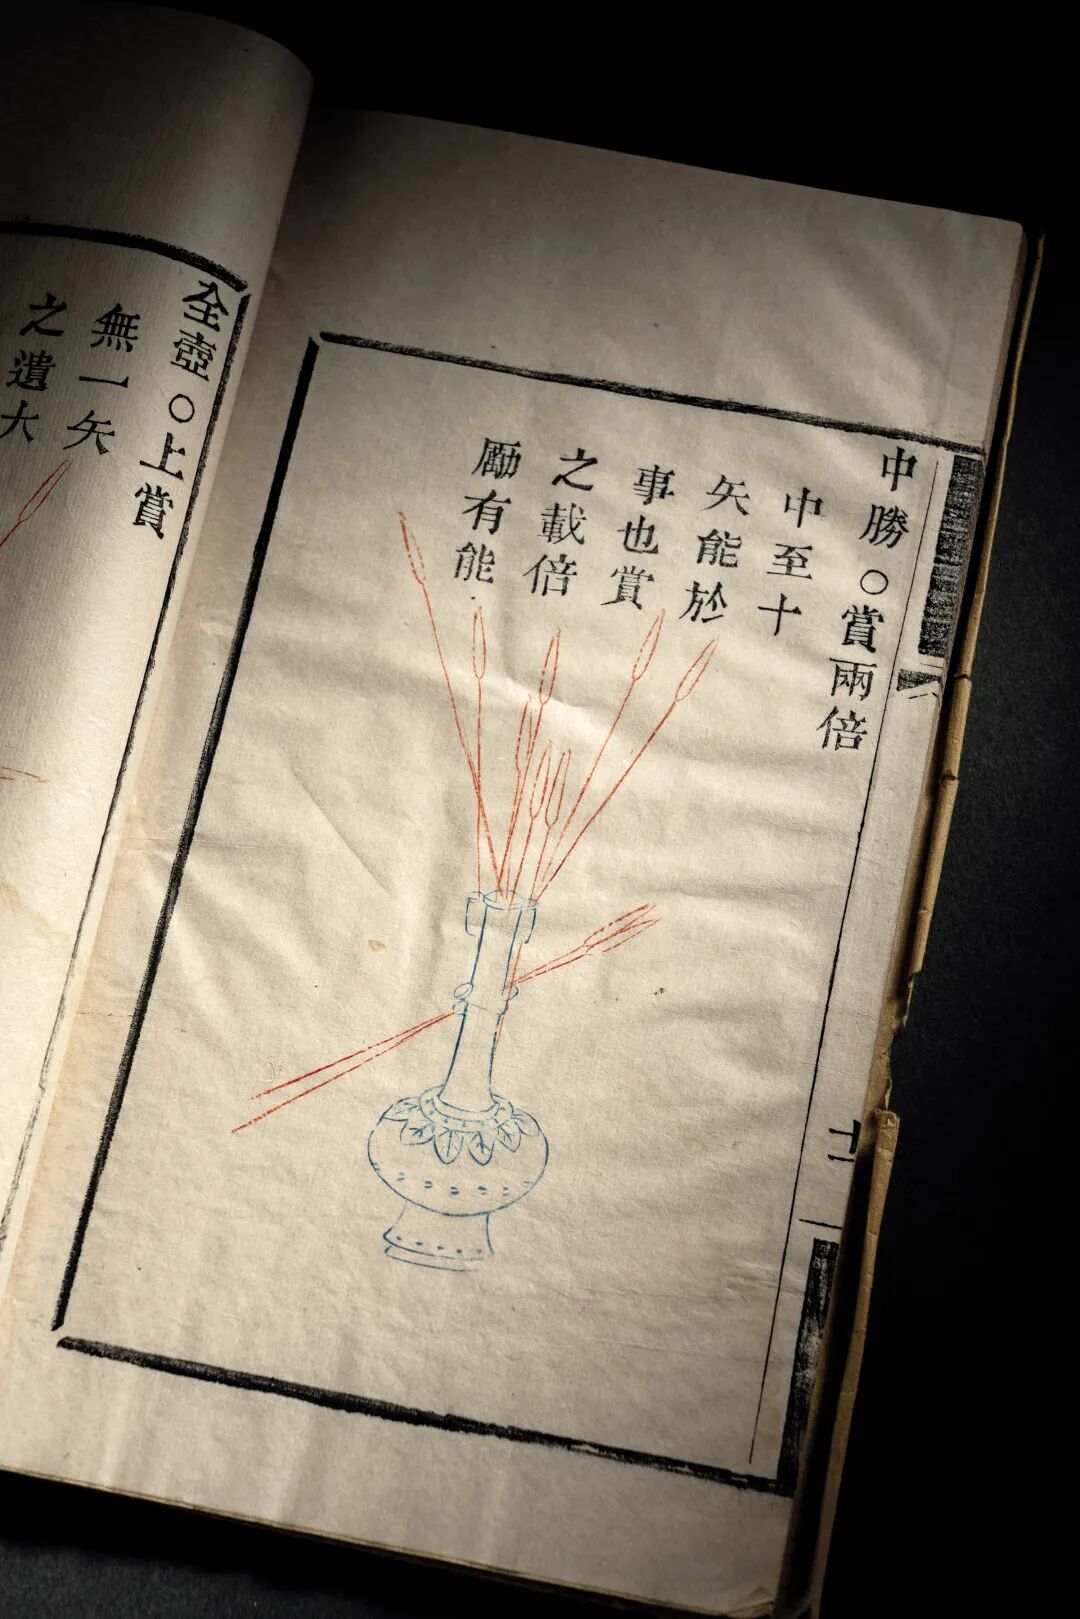 中勝○賞兩倍
中至十
矢能於
事也賞
之載倍
勵有能
十二
全壺○上賞
無一矢
之遺大